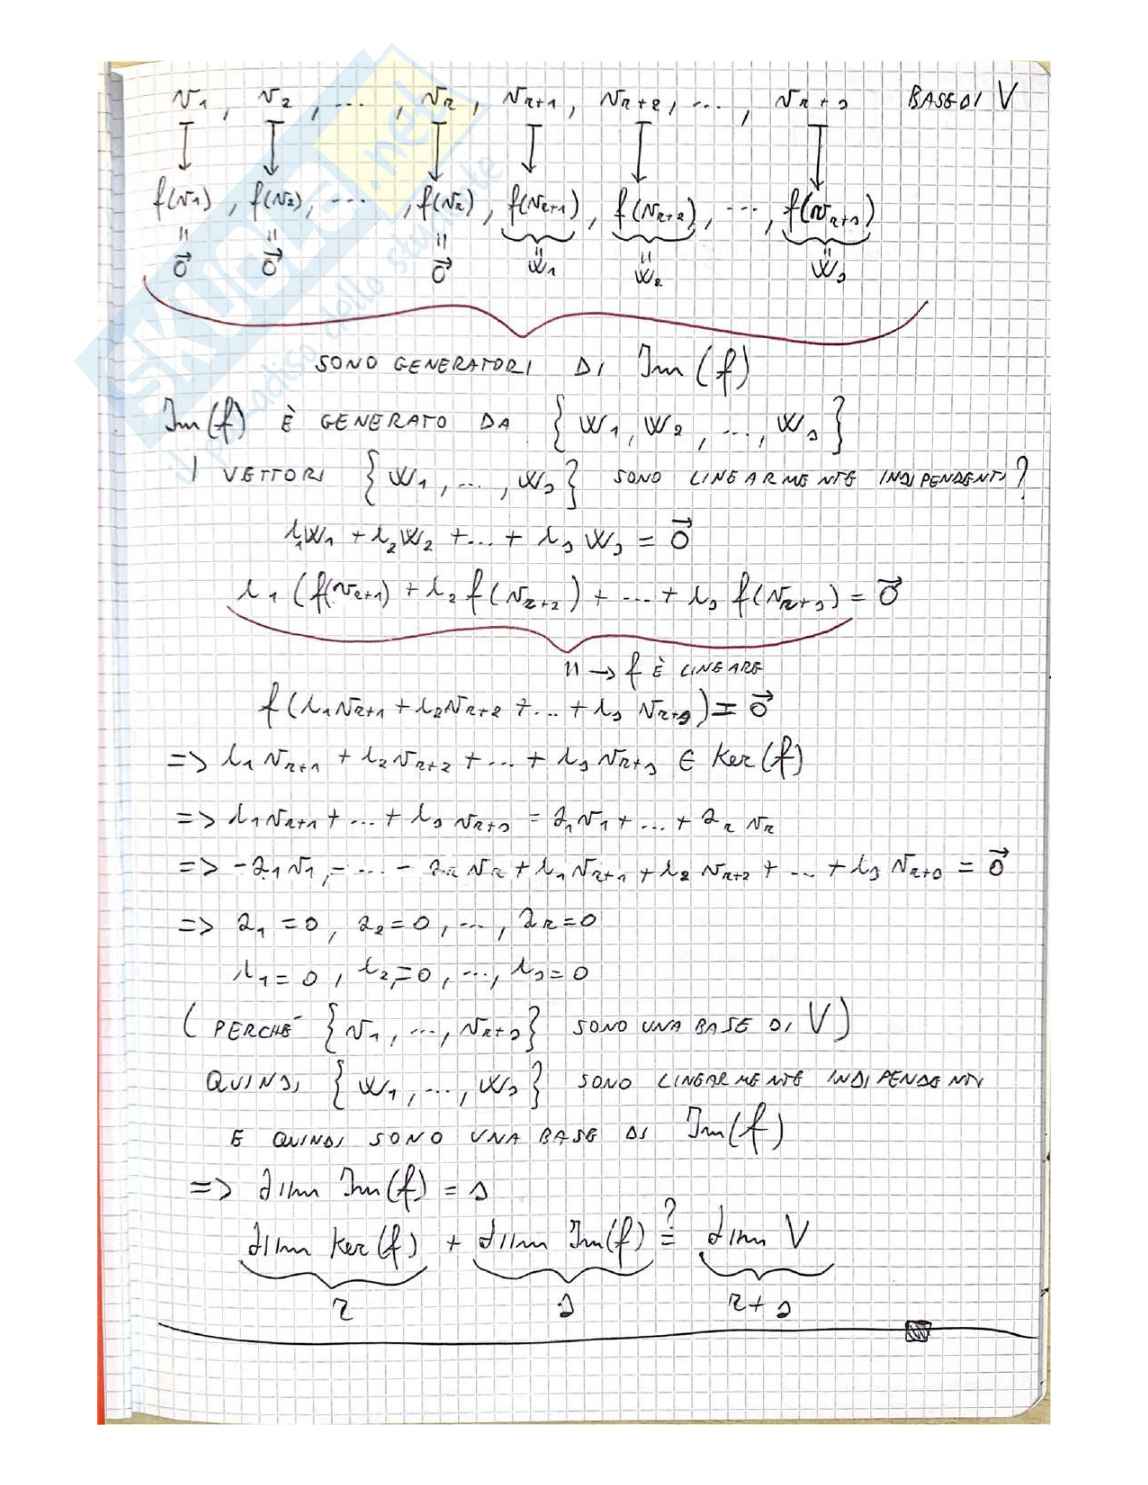 v₁ , v₂ , ... , vᵣ , vᵣ₊₁ , vᵣ₊₂ , ... , vᵣ₊ₛ BASE DI V
↓ ↓ ↓ ↓ ↓ ↓
f(v₁) , f(v₂) , ... , f(vᵣ) , f(vᵣ₊₁) , f(vᵣ₊₂) , ... , f(vᵣ₊ₛ)
= = = = = =
0⃗ 0⃗ 0⃗ w₁ w₂ wₛ
SONO GENERATORI DI Im(f)
Im(f) È GENERATO DA {w₁, w₂, ..., wₛ}
I VETTORI {w₁, ..., wₛ} SONO LINEARMENTE INDIPENDENTI?
λ₁w₁ + λ₂w₂ + ... + λₛwₛ = 0⃗
λ₁(f(vᵣ₊₁) + λ₂f(vᵣ₊₂) + ... + λₛf(vᵣ₊ₛ) = 0⃗
= → f È LINEARE
f(λ₁vᵣ₊₁ + λ₂vᵣ₊₂ + ... + λₛvᵣ₊ₛ) = 0⃗
=> λ₁vᵣ₊₁ + λ₂vᵣ₊₂ + ... + λₛvᵣ₊ₛ ∈ Ker(f)
=> λ₁vᵣ₊₁ + ... + λₛvᵣ₊ₛ = a₁v₁ + ... + aᵣvᵣ
=> -a₁v₁ - ... - aᵣvᵣ + λ₁vᵣ₊₁ + λ₂vᵣ₊₂ + ... + λₛvᵣ₊ₛ = 0⃗
=> a₁ = 0 , a₂ = 0 , ... , aᵣ = 0
λ₁ = 0 , λ₂ = 0 , ... , λₛ = 0
(PERCHÉ {v₁, ..., vᵣ₊ₛ} SONO UNA BASE DI V)
QUINDI {w₁, ..., wₛ} SONO LINEARMENTE INDIPENDENTI
E QUINDI SONO UNA BASE DI Im(f)
=> dim Im(f) = s
dim Ker(f) + dim Im(f) ≟ dim V
r s r + s